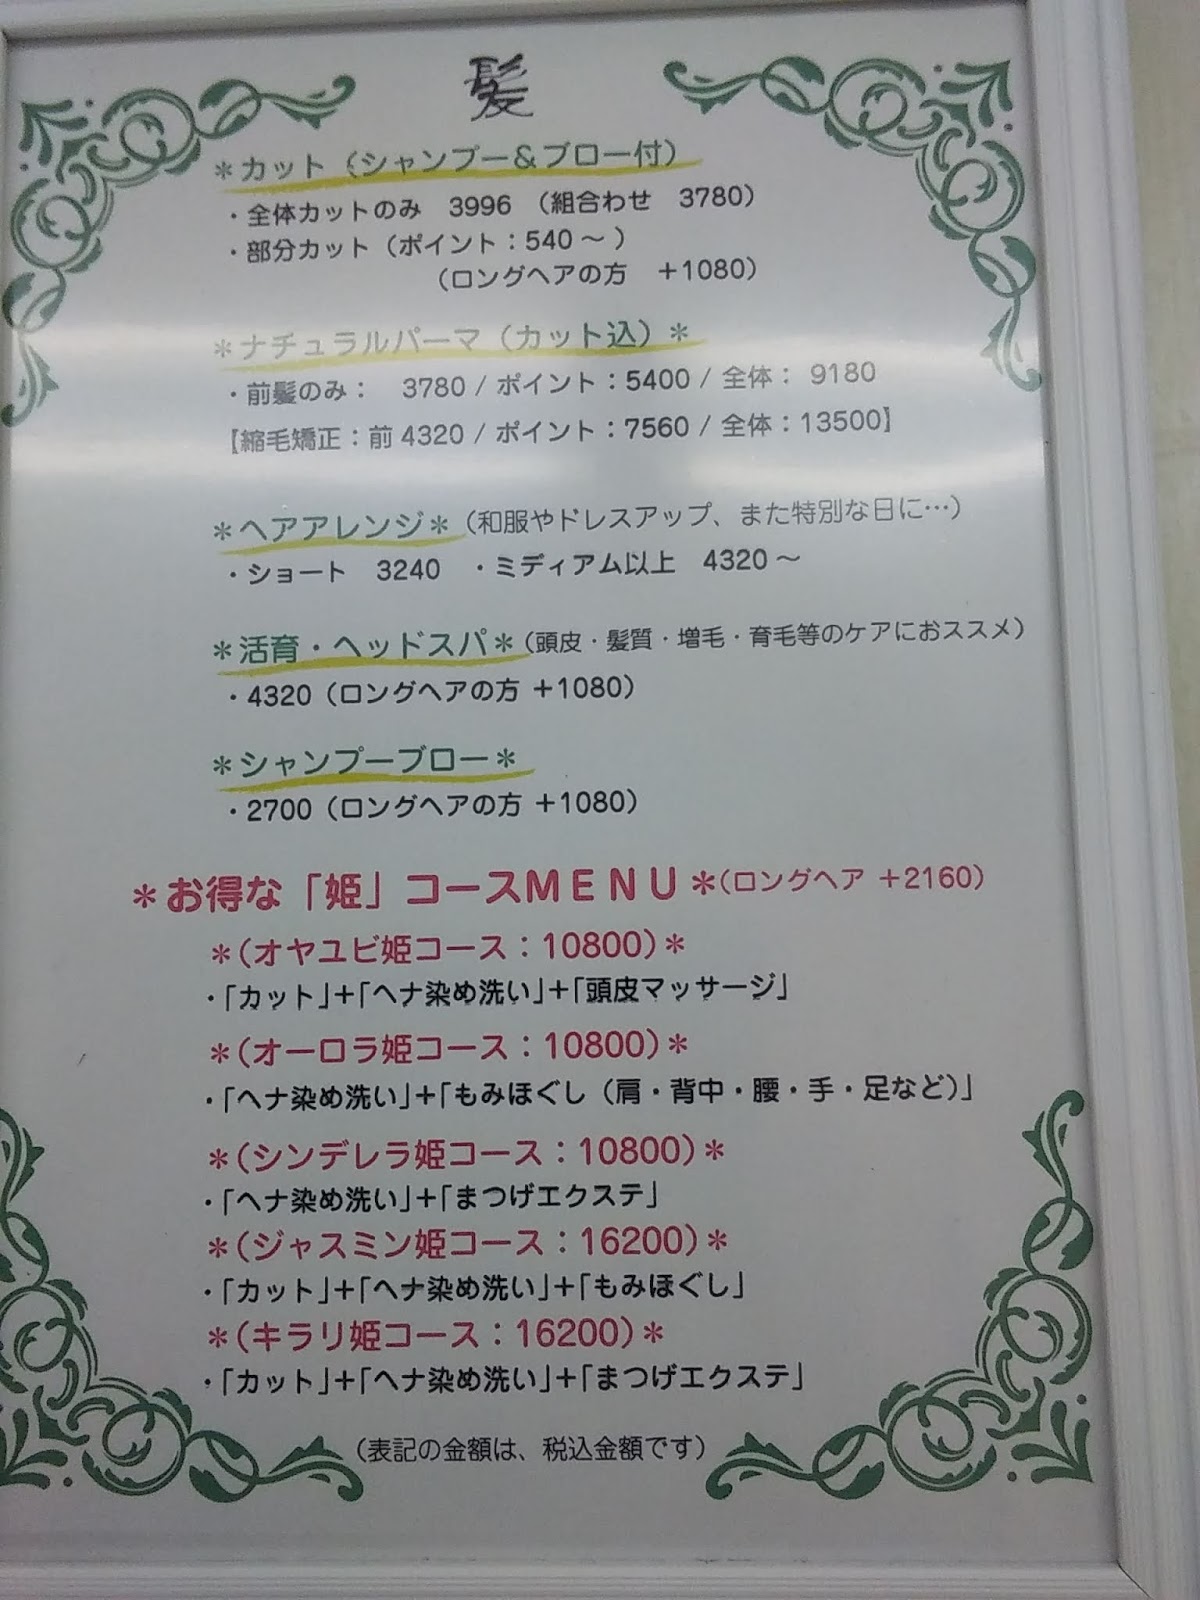 髪
＊カット（シャンプー＆ブロー付）
・全体カットのみ　3996　（組合わせ　3780）
・部分カット（ポイント：540～）
（ロングヘアの方　＋1080）
＊ナチュラルパーマ（カット込）＊
・前髪のみ：　3780 / ポイント：5400 / 全体： 9180
【縮毛矯正：前 4320 / ポイント：7560 / 全体：13500】
＊ヘアアレンジ＊（和服やドレスアップ、また特別な日に…）
・ショート　3240　・ミディアム以上　4320～
＊活育・ヘッドスパ＊（頭皮・髪質・増毛・育毛等のケアにおススメ）
・4320（ロングヘアの方 ＋1080）
＊シャンプーブロー＊
・2700（ロングヘアの方 ＋1080）
＊お得な「姫」コースＭＥＮＵ＊（ロングヘア ＋2160）
＊（オヤユビ姫コース：10800）＊
・「カット」＋「ヘナ染め洗い」＋「頭皮マッサージ」
＊（オーロラ姫コース：10800）＊
・「ヘナ染め洗い」＋「もみほぐし（肩・背中・腰・手・足など）」
＊（シンデレラ姫コース：10800）＊
・「ヘナ染め洗い」＋「まつげエクステ」
＊（ジャスミン姫コース：16200）＊
・「カット」＋「ヘナ染め洗い」＋「もみほぐし」
＊（キラリ姫コース：16200）＊
・「カット」＋「ヘナ染め洗い」＋「まつげエクステ」
（表記の金額は、税込金額です）